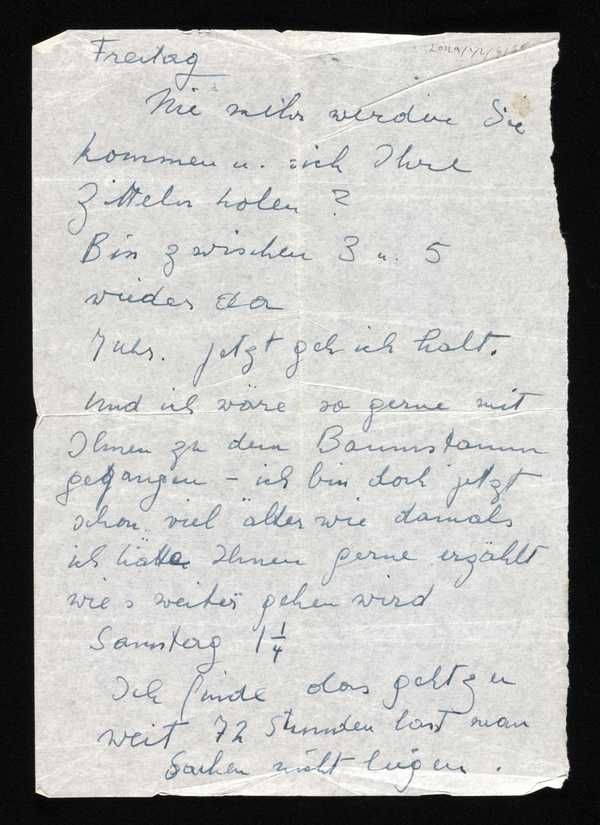 Freitag
Nie mehr werden Sie
kommen u. ich Ihre
Zitteln holen ?
Bin zwischen 3 u. 5
wieder da
7 Uhr. Jetzt geh ich halt.
Und ich wäre so gerne mit
Ihnen zu dem Baumstamm
gegangen – ich bin doch jetzt
schon viel älter wie damals
ich hätte Ihnen gerne erzählt
wie s weiter gehen wird
Samstag 1 1/4
Ich finde das geht zu
weit 72 Stunden last man
Sachen nicht liegen.